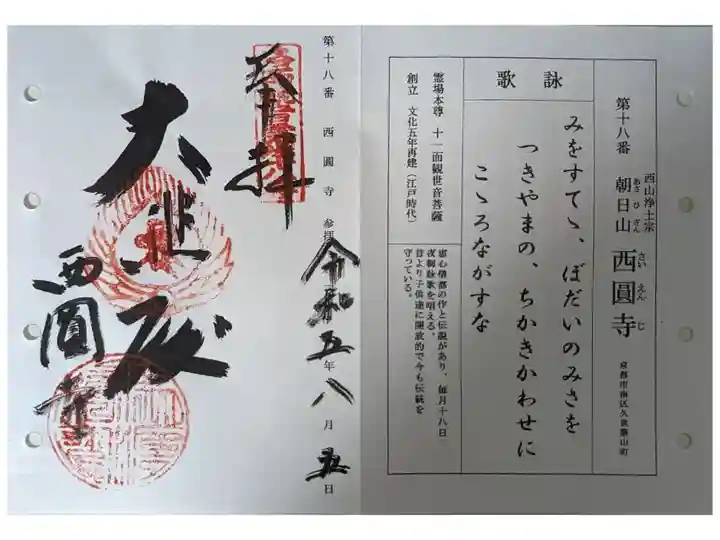 第十八番
西山浄土宗
朝日山 西圓寺
あさ ひ ざん
さい えん じ
京都市南区久世築山町
詠歌
みをすてゝ、ぼだいのみさを
つきやまの、ちかきかわせに
こゝろながすな
霊場本尊 十一面観世音菩薩
創立 文化五年再建(江戸時代)
恵心僧都の作と伝説があり、毎月十八日
夜御詠歌を唱える。
昔より子供達に開放的で今も伝統を
守っている。
第十八番 西圓寺 参拝
令和五年八月五日
奉拝
大悲殿
西圓寺